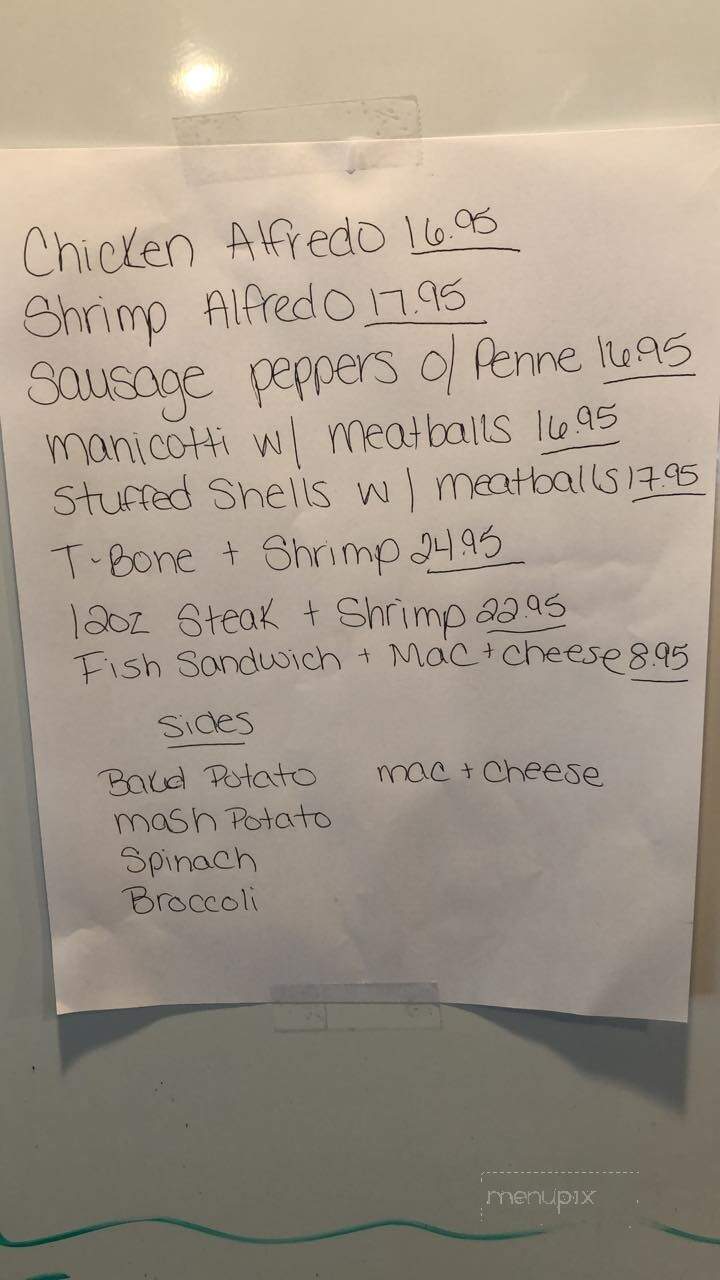 Chicken Alfredo 16.95
Shrimp Alfredo 17.95
Sausage peppers o/ Penne 16.95
manicotti w/ meatballs 16.95
Stuffed Shells w/ meatballs 17.95
T-Bone + Shrimp 24.95
12oz Steak + Shrimp 22.95
Fish Sandwich + Mac + cheese 8.95
Sides
Bakd Potato mac + cheese
mash Potato
Spinach
Broccoli
menupix